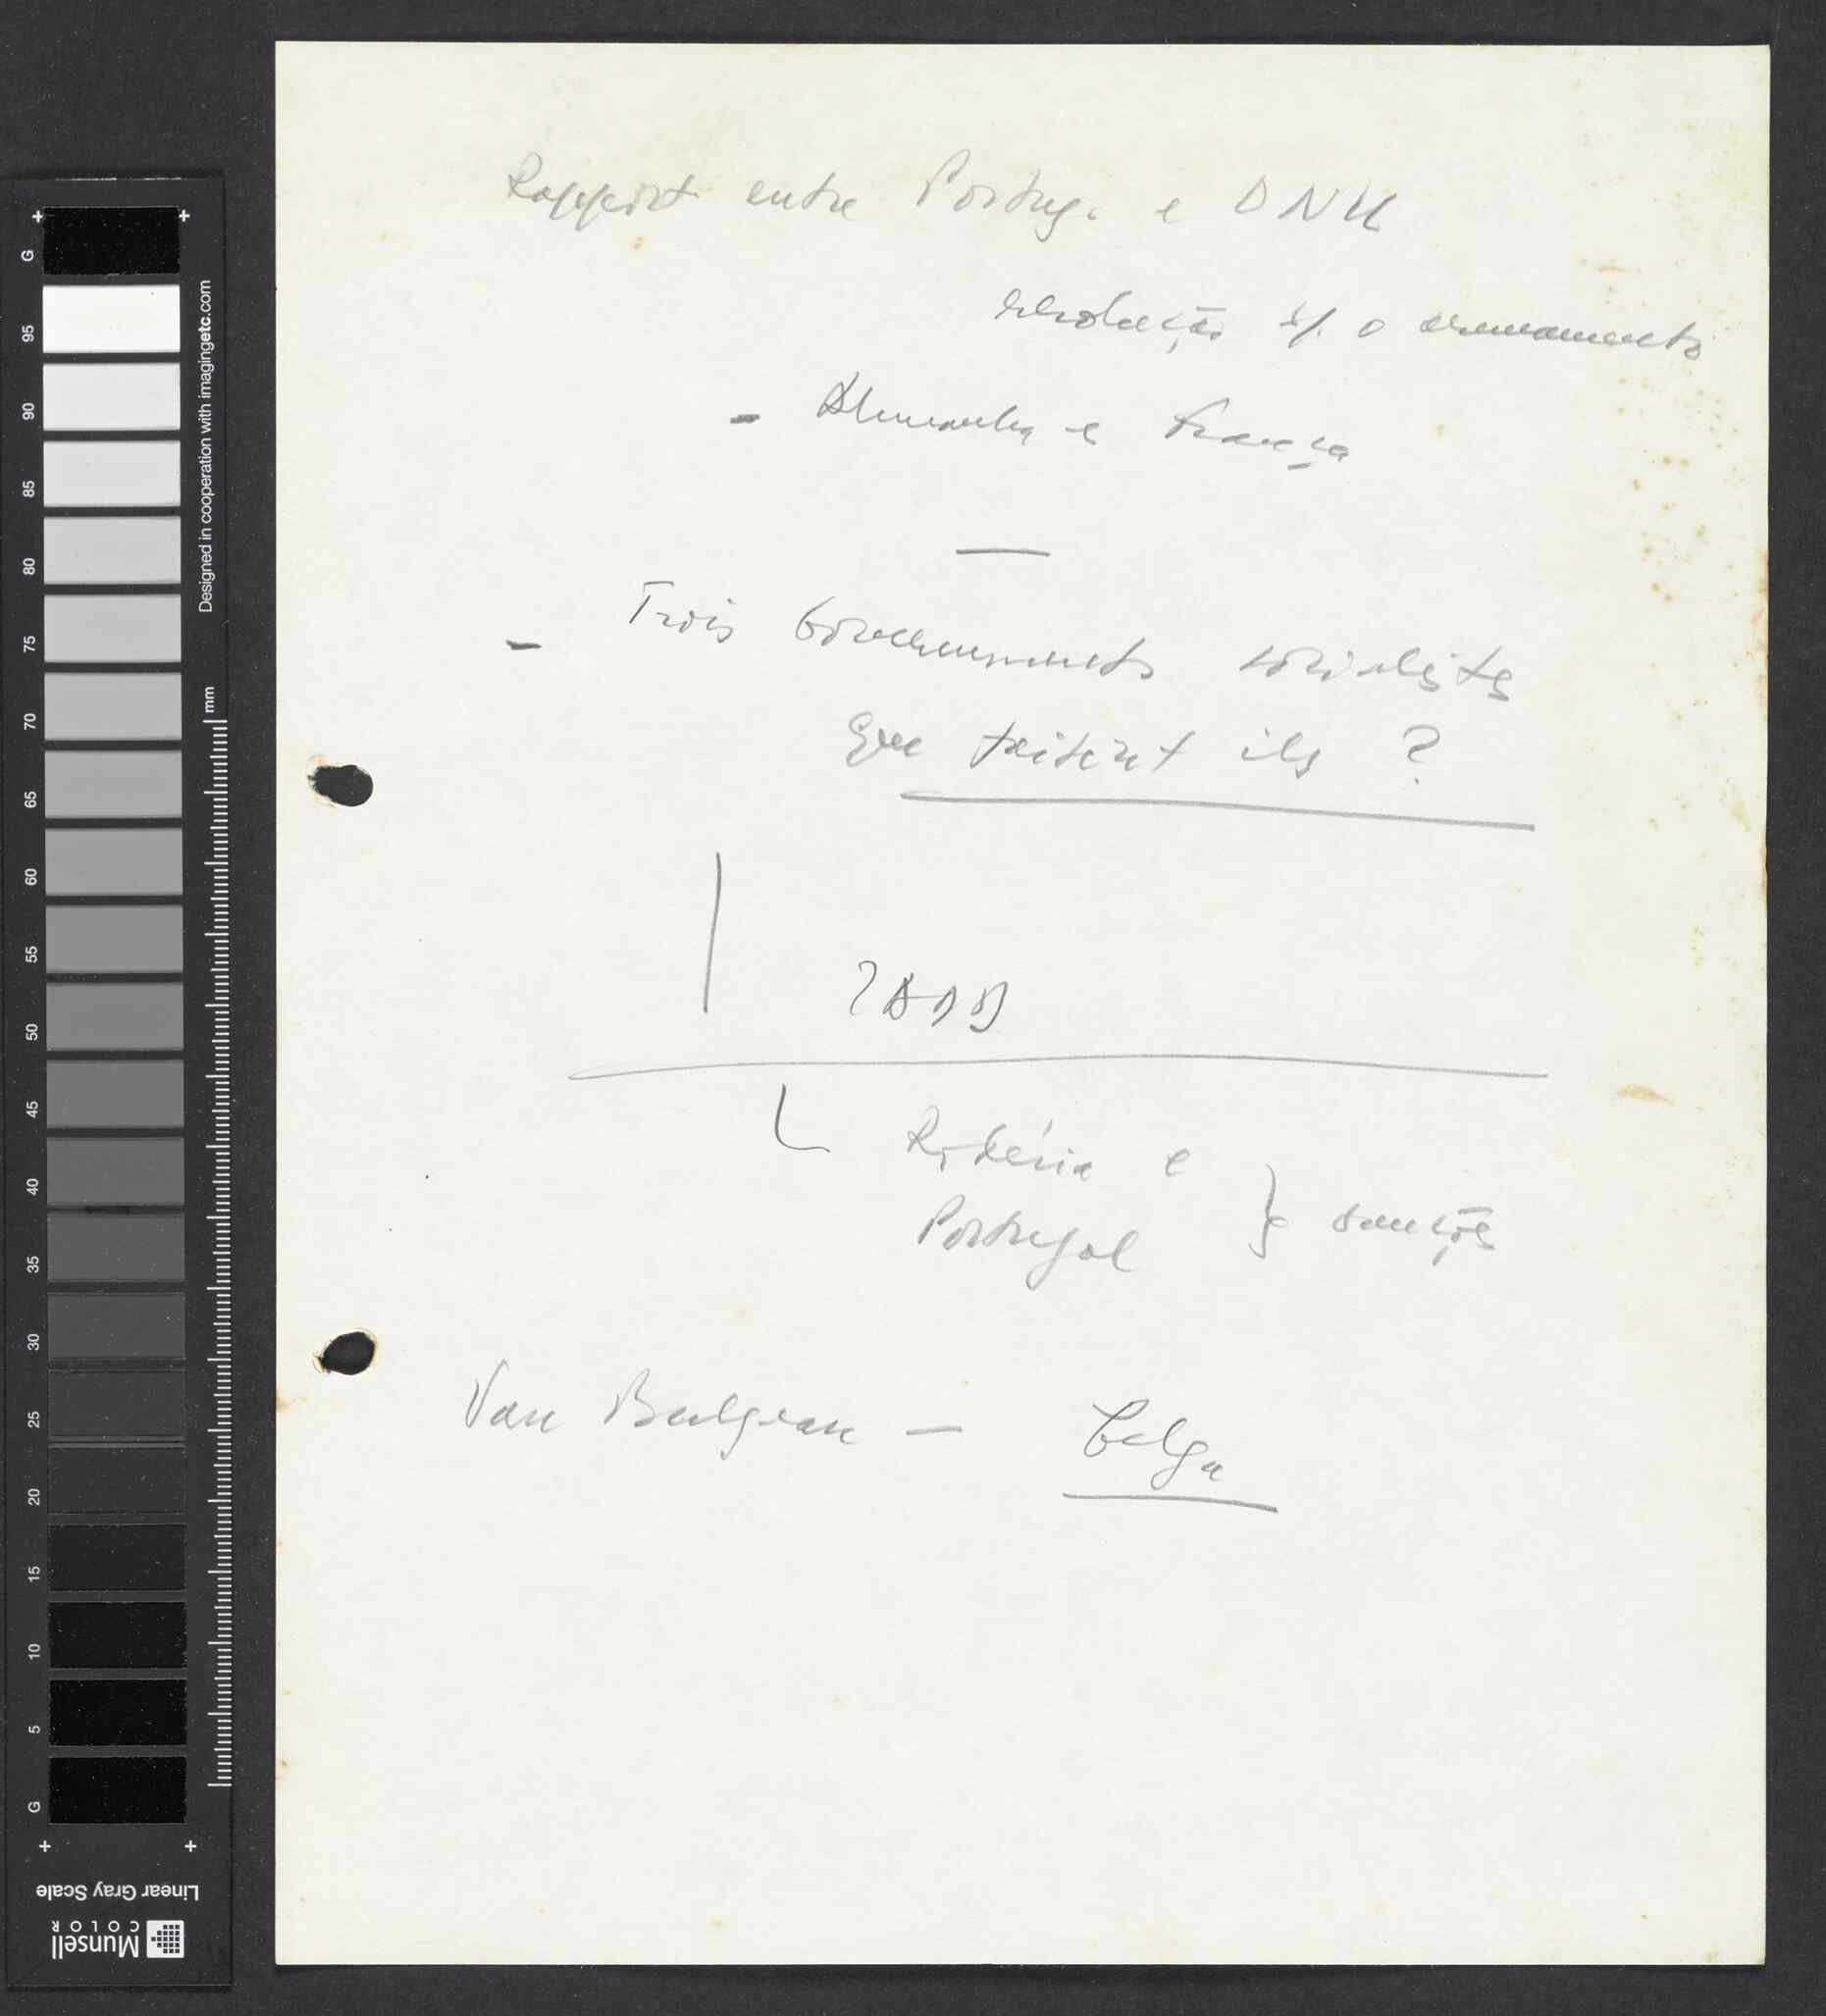 Rapport entre Portug. e ONU
resolução s/. o armamento
- Alemanha e França
—
- Trois Gouvernements socialistes
Que faisent ils ?
Rodésia e
Portugal } sanções
Van Bulgean — belga
G
95
90
85
80
75
70
65
60
55
50
45
40
35
30
25
20
15
10
5
G
Designed in cooperation with imagingetc.com
mm
Linear Gray Scale
Munsell
COLOR